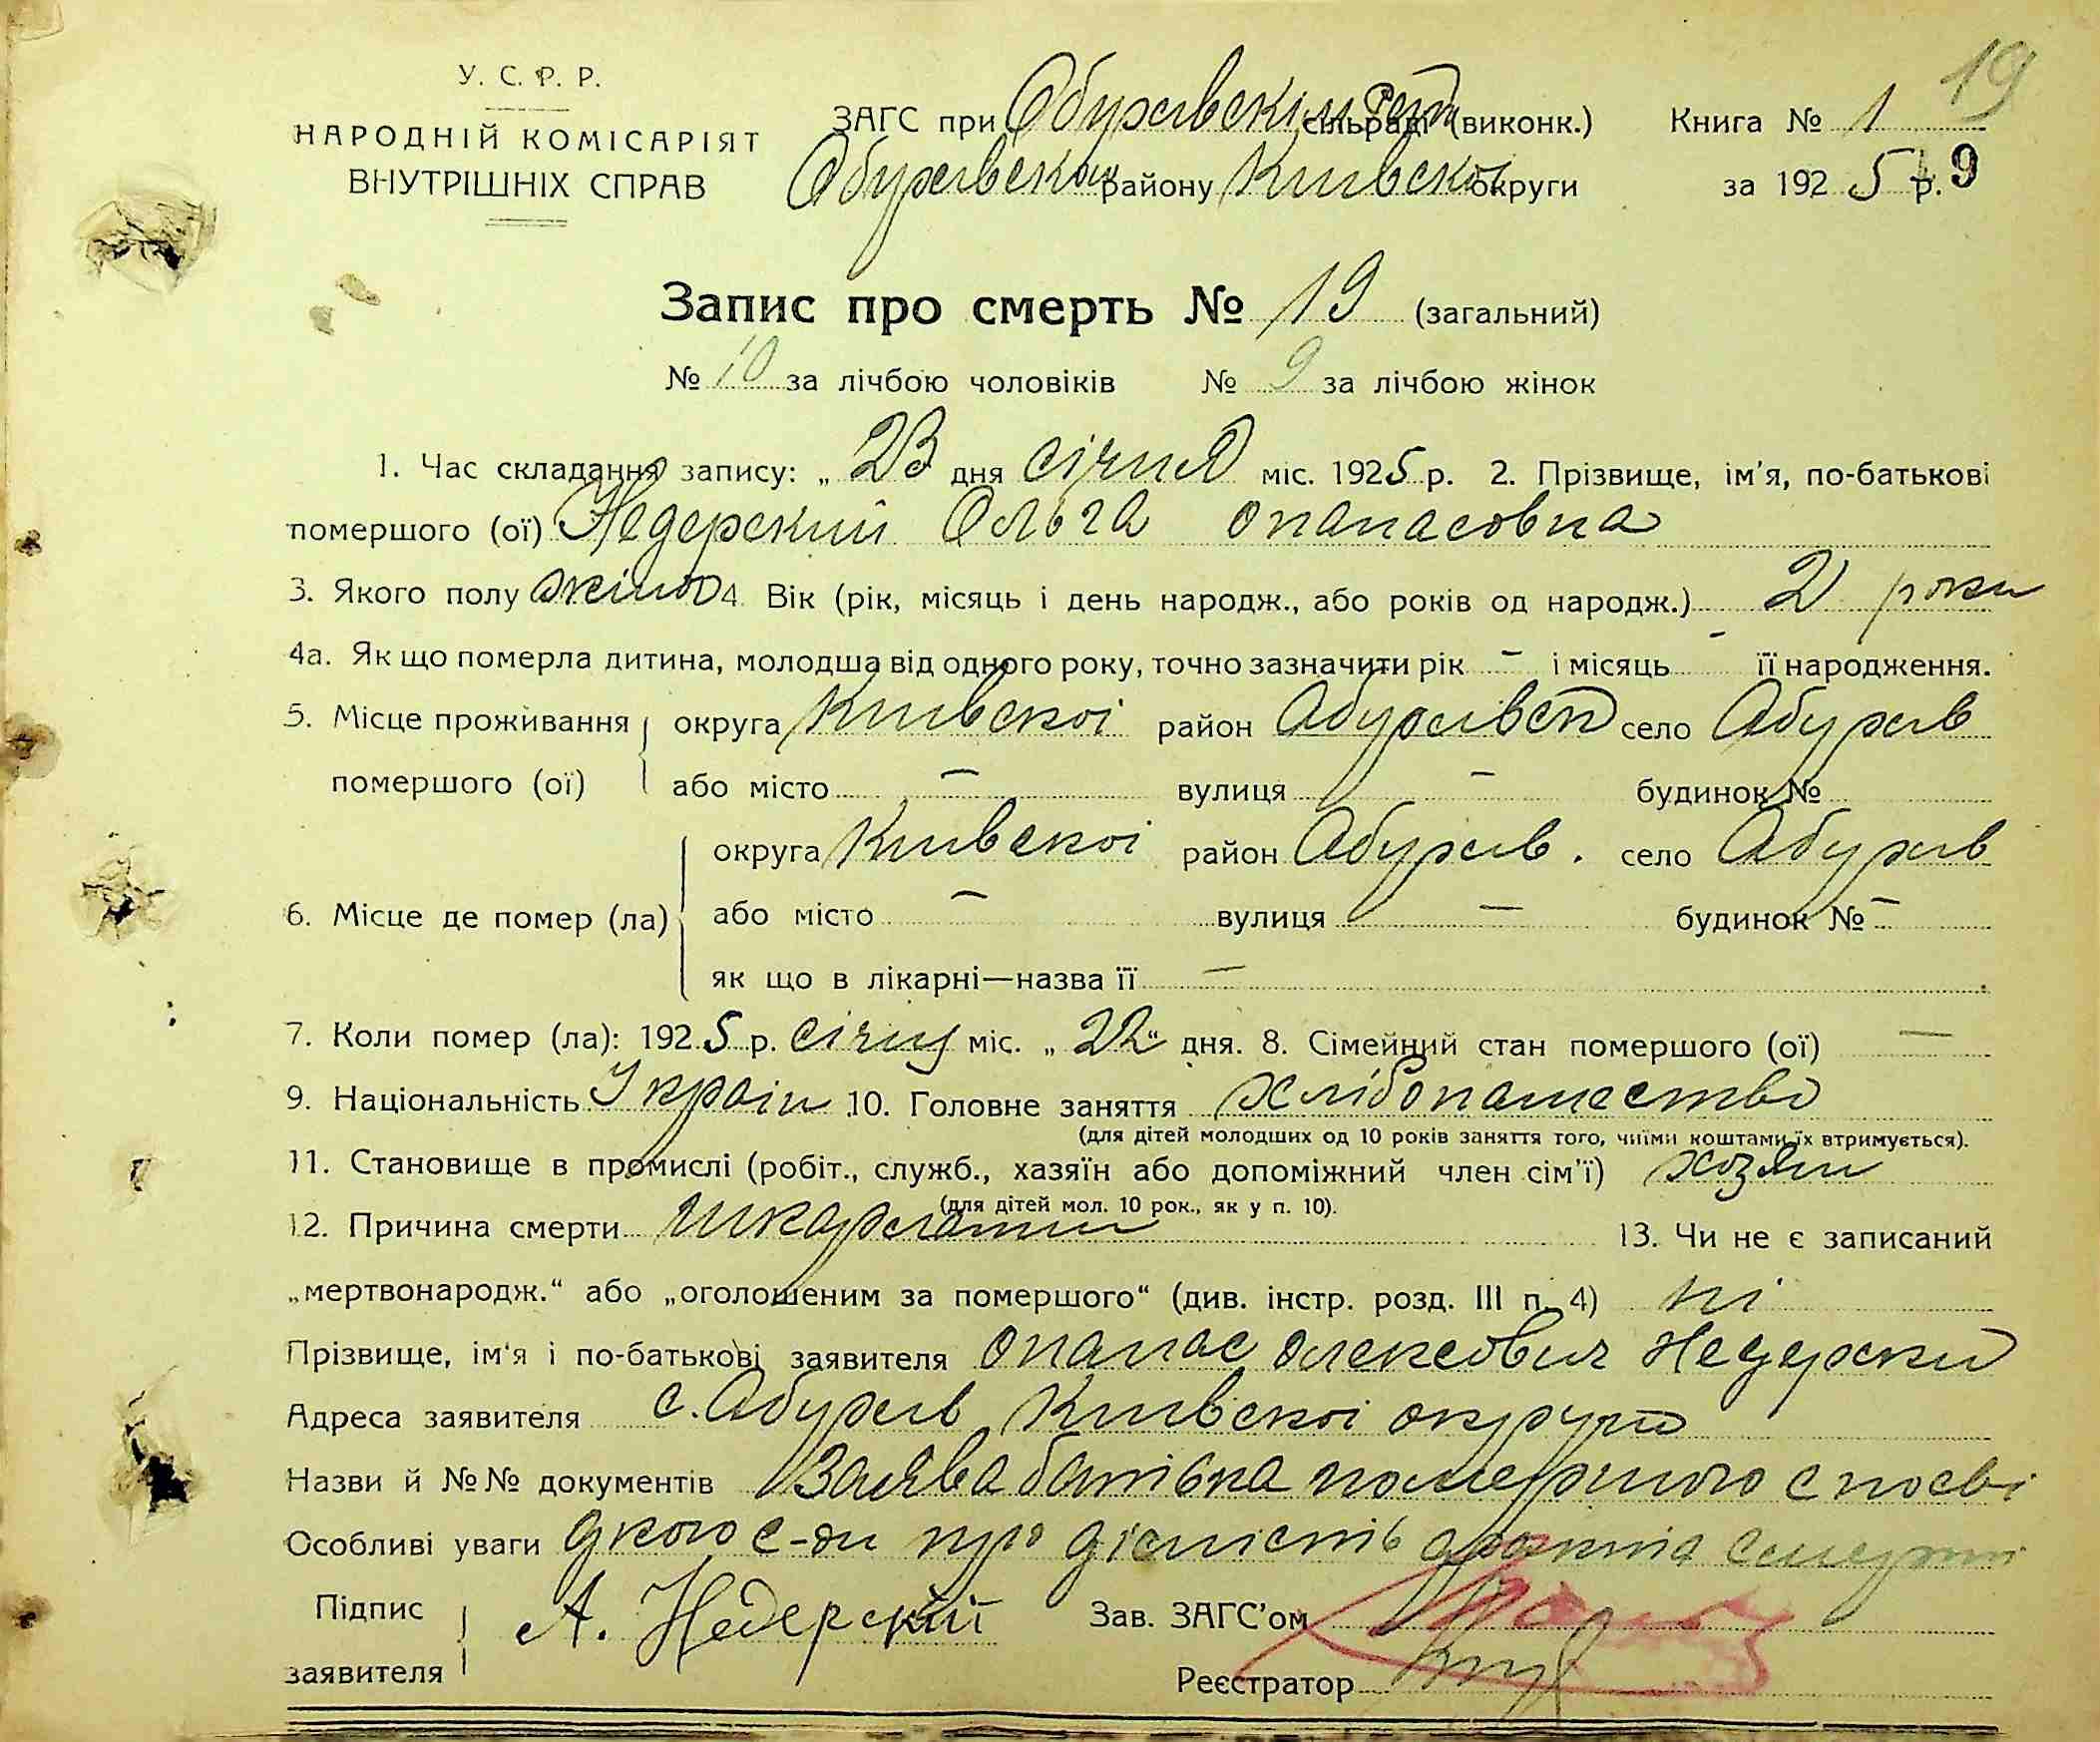 19
У. С. Р. Р.
НАРОДНІЙ КОМІСАРІЯТ
ВНУТРІШНІХ СПРАВ
ЗАГС при Обухівскім Рай сільраді (виконк.) Книга № 1
Обухівского району Київской округи за 1925 р. 9
Запис про смерть № 19 (загальний)
№ 10 за лічбою чоловіків № 9 за лічбою жінок
1. Час складання запису: „ 23 дня січня міс. 1925 р. 2. Прізвище, ім'я, по-батькові
помершого (ої) Недерский Ольга Опанасовна
3. Якого полу жіноч 4. Вік (рік, місяць і день народж., або років од народж.) 2 роки
4а. Як що померла дитина, молодша від одного року, точно зазначити рік - і місяць - її народження.
5. Місце проживання округа Київскоі район Абухівск село Абухів
помершого (ої) або місто — вулиця — будинок №
округа Київскоі район Абухів. село Абухів
6. Місце де помер (ла) або місто — вулиця — будинок № —
як що в лікарні—назва її —
7. Коли помер (ла): 1925 р. січня міс. „ 22 “ дня. 8. Сімейний стан помершого (ої) —
9. Національність Україн 10. Головне заняття хлібопашество
(для дітей молодших од 10 років заняття того, чиїми коштами їх втримується).
11. Становище в промислі (робіт., служб., хазяїн або допоміжний член сім'ї) хозяин
(для дітей мол. 10 рок., як у п. 10).
12. Причина смерти шкарлатин 13. Чи не є записаний
„мертвонародж.“ або „оголошеним за помершого“ (див. інстр. розд. III п. 4) ні
Прізвище, ім'я і по-батькові заявителя Опанас Олексович Недерски
Адреса заявителя с. Абухів Київскоі округи
Назви й №№ документів Заява батька помершого с посві
Особливі уваги дкою с-ди про дісність факта смерти
Підпис заявителя А. Недерский Зав. ЗАГС'ом
Реєстратор